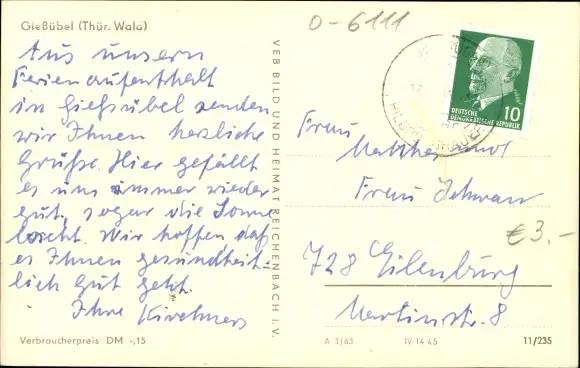 Gießübel (Thür. Wald)
O-6111
Aus unserm
Ferienaufenthalt
in Gießübel senden
wir Ihnen herzliche
Grüße. Hier gefällt
es uns immer wieder
gut, sogar die Sonne
lacht. Wir hoffen daß
es Ihnen gesundheit-
lich gut geht.
Ihre Kirchners
Verbraucherpreis DM -,15
VEB BILD UND HEIMAT REICHENBACH i. V.
10
DEUTSCHE
DEMOKRATISCHE REPUBLIK
Frau
Frau Schwarz
€ 3.-
728 Eilenburg
Martinstr. 8
A 3/63 IV-14 45 11/235